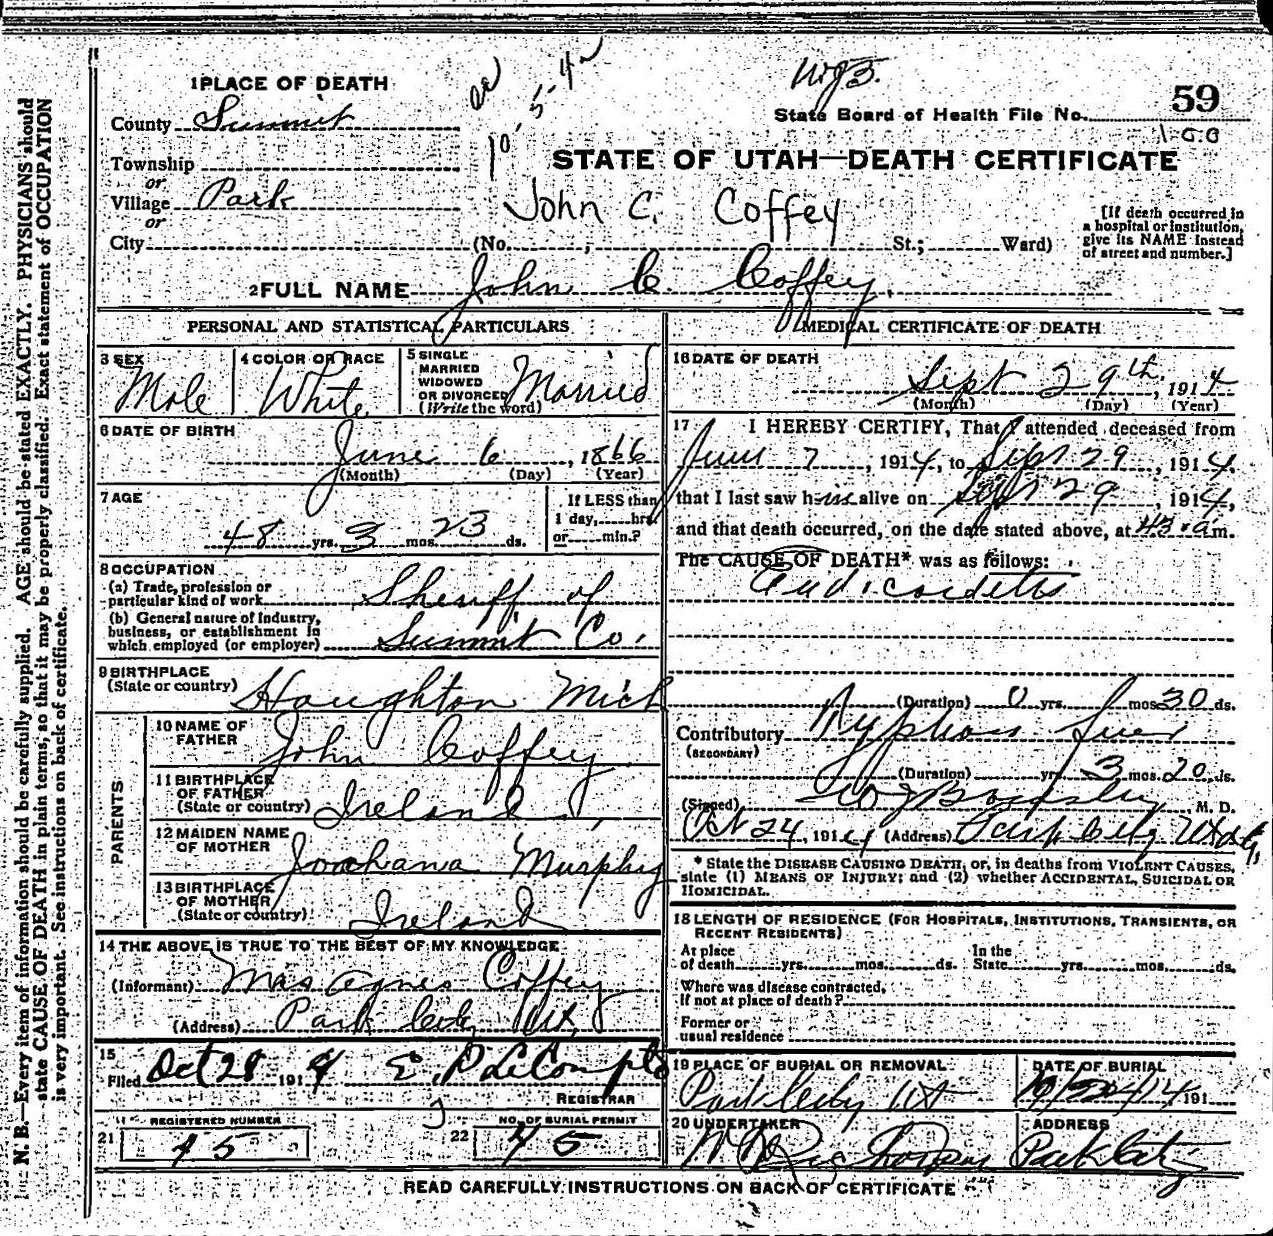 1 PLACE OF DEATH
County Summit
Township
or
Village Park
or
City (No. ; St.; Ward)
State Board of Health File No. 59
STATE OF UTAH—DEATH CERTIFICATE
John C. Coffey
[If death occurred in
a hospital or institution,
give its NAME instead
of street and number.]
2 FULL NAME John C. Coffey
PERSONAL AND STATISTICAL PARTICULARS
3 SEX
Male
4 COLOR OR RACE
White
5 SINGLE
MARRIED
WIDOWED
OR DIVORCED
(Write the word)
Married
6 DATE OF BIRTH
June 6, 1866
(Month) (Day) (Year)
7 AGE
48 yrs. 3 mos. 23 ds.
If LESS than
1 day, hrs.
or min.?
8 OCCUPATION
(a) Trade, profession or
particular kind of work Sheriff of
(b) General nature of industry,
business, or establishment in
which employed (or employer) Summit Co.
9 BIRTHPLACE
(State or country) Houghton Mich
PARENTS
10 NAME OF
FATHER John Coffey
11 BIRTHPLACE
OF FATHER
(State or country) Ireland
12 MAIDEN NAME
OF MOTHER Murphy
13 BIRTHPLACE
OF MOTHER
(State or country) Ireland
14 THE ABOVE IS TRUE TO THE BEST OF MY KNOWLEDGE
(Informant) Mrs Agnes Coffey
(Address) Park City Ut.
15
Filed Oct 28 1914
REGISTRAR
REGISTERED NUMBER
21 45
NO. OF BURIAL PERMIT
22 45
MEDICAL CERTIFICATE OF DEATH
16 DATE OF DEATH
Sept 29th, 1914
(Month) (Day) (Year)
17 I HEREBY CERTIFY, That I attended deceased from
June 7, 1914, to Sept 29, 1914,
that I last saw him alive on Sept 29, 1914,
and that death occurred, on the date stated above, at a.m.
The CAUSE OF DEATH* was as follows:
(Duration) 0 yrs. mos. 30 ds.
Contributory
(SECONDARY)
(Duration) yrs. 3 mos. 20 ds.
(Signed) M. D.
Oct 24, 1914 (Address) Park City Utah,
* State the DISEASE CAUSING DEATH, or, in deaths from VIOLENT CAUSES,
state (1) MEANS OF INJURY; and (2) whether ACCIDENTAL, SUICIDAL OR
HOMICIDAL.
18 LENGTH OF RESIDENCE (FOR HOSPITALS, INSTITUTIONS, TRANSIENTS, OR
RECENT RESIDENTS)
At place
of death yrs. mos. ds.
In the
State yrs. mos. ds.
Where was disease contracted,
if not at place of death?
Former or
usual residence
19 PLACE OF BURIAL OR REMOVAL
Park City Ut
DATE OF BURIAL
191
20 UNDERTAKER
ADDRESS
Park City
READ CAREFULLY INSTRUCTIONS ON BACK OF CERTIFICATE
N. B.—Every item of information should be carefully supplied. AGE should be stated EXACTLY. PHYSICIANS should
state CAUSE OF DEATH in plain terms, so that it may be properly classified. Exact statement of OCCUPATION
is very important. See instructions on back of certificate.